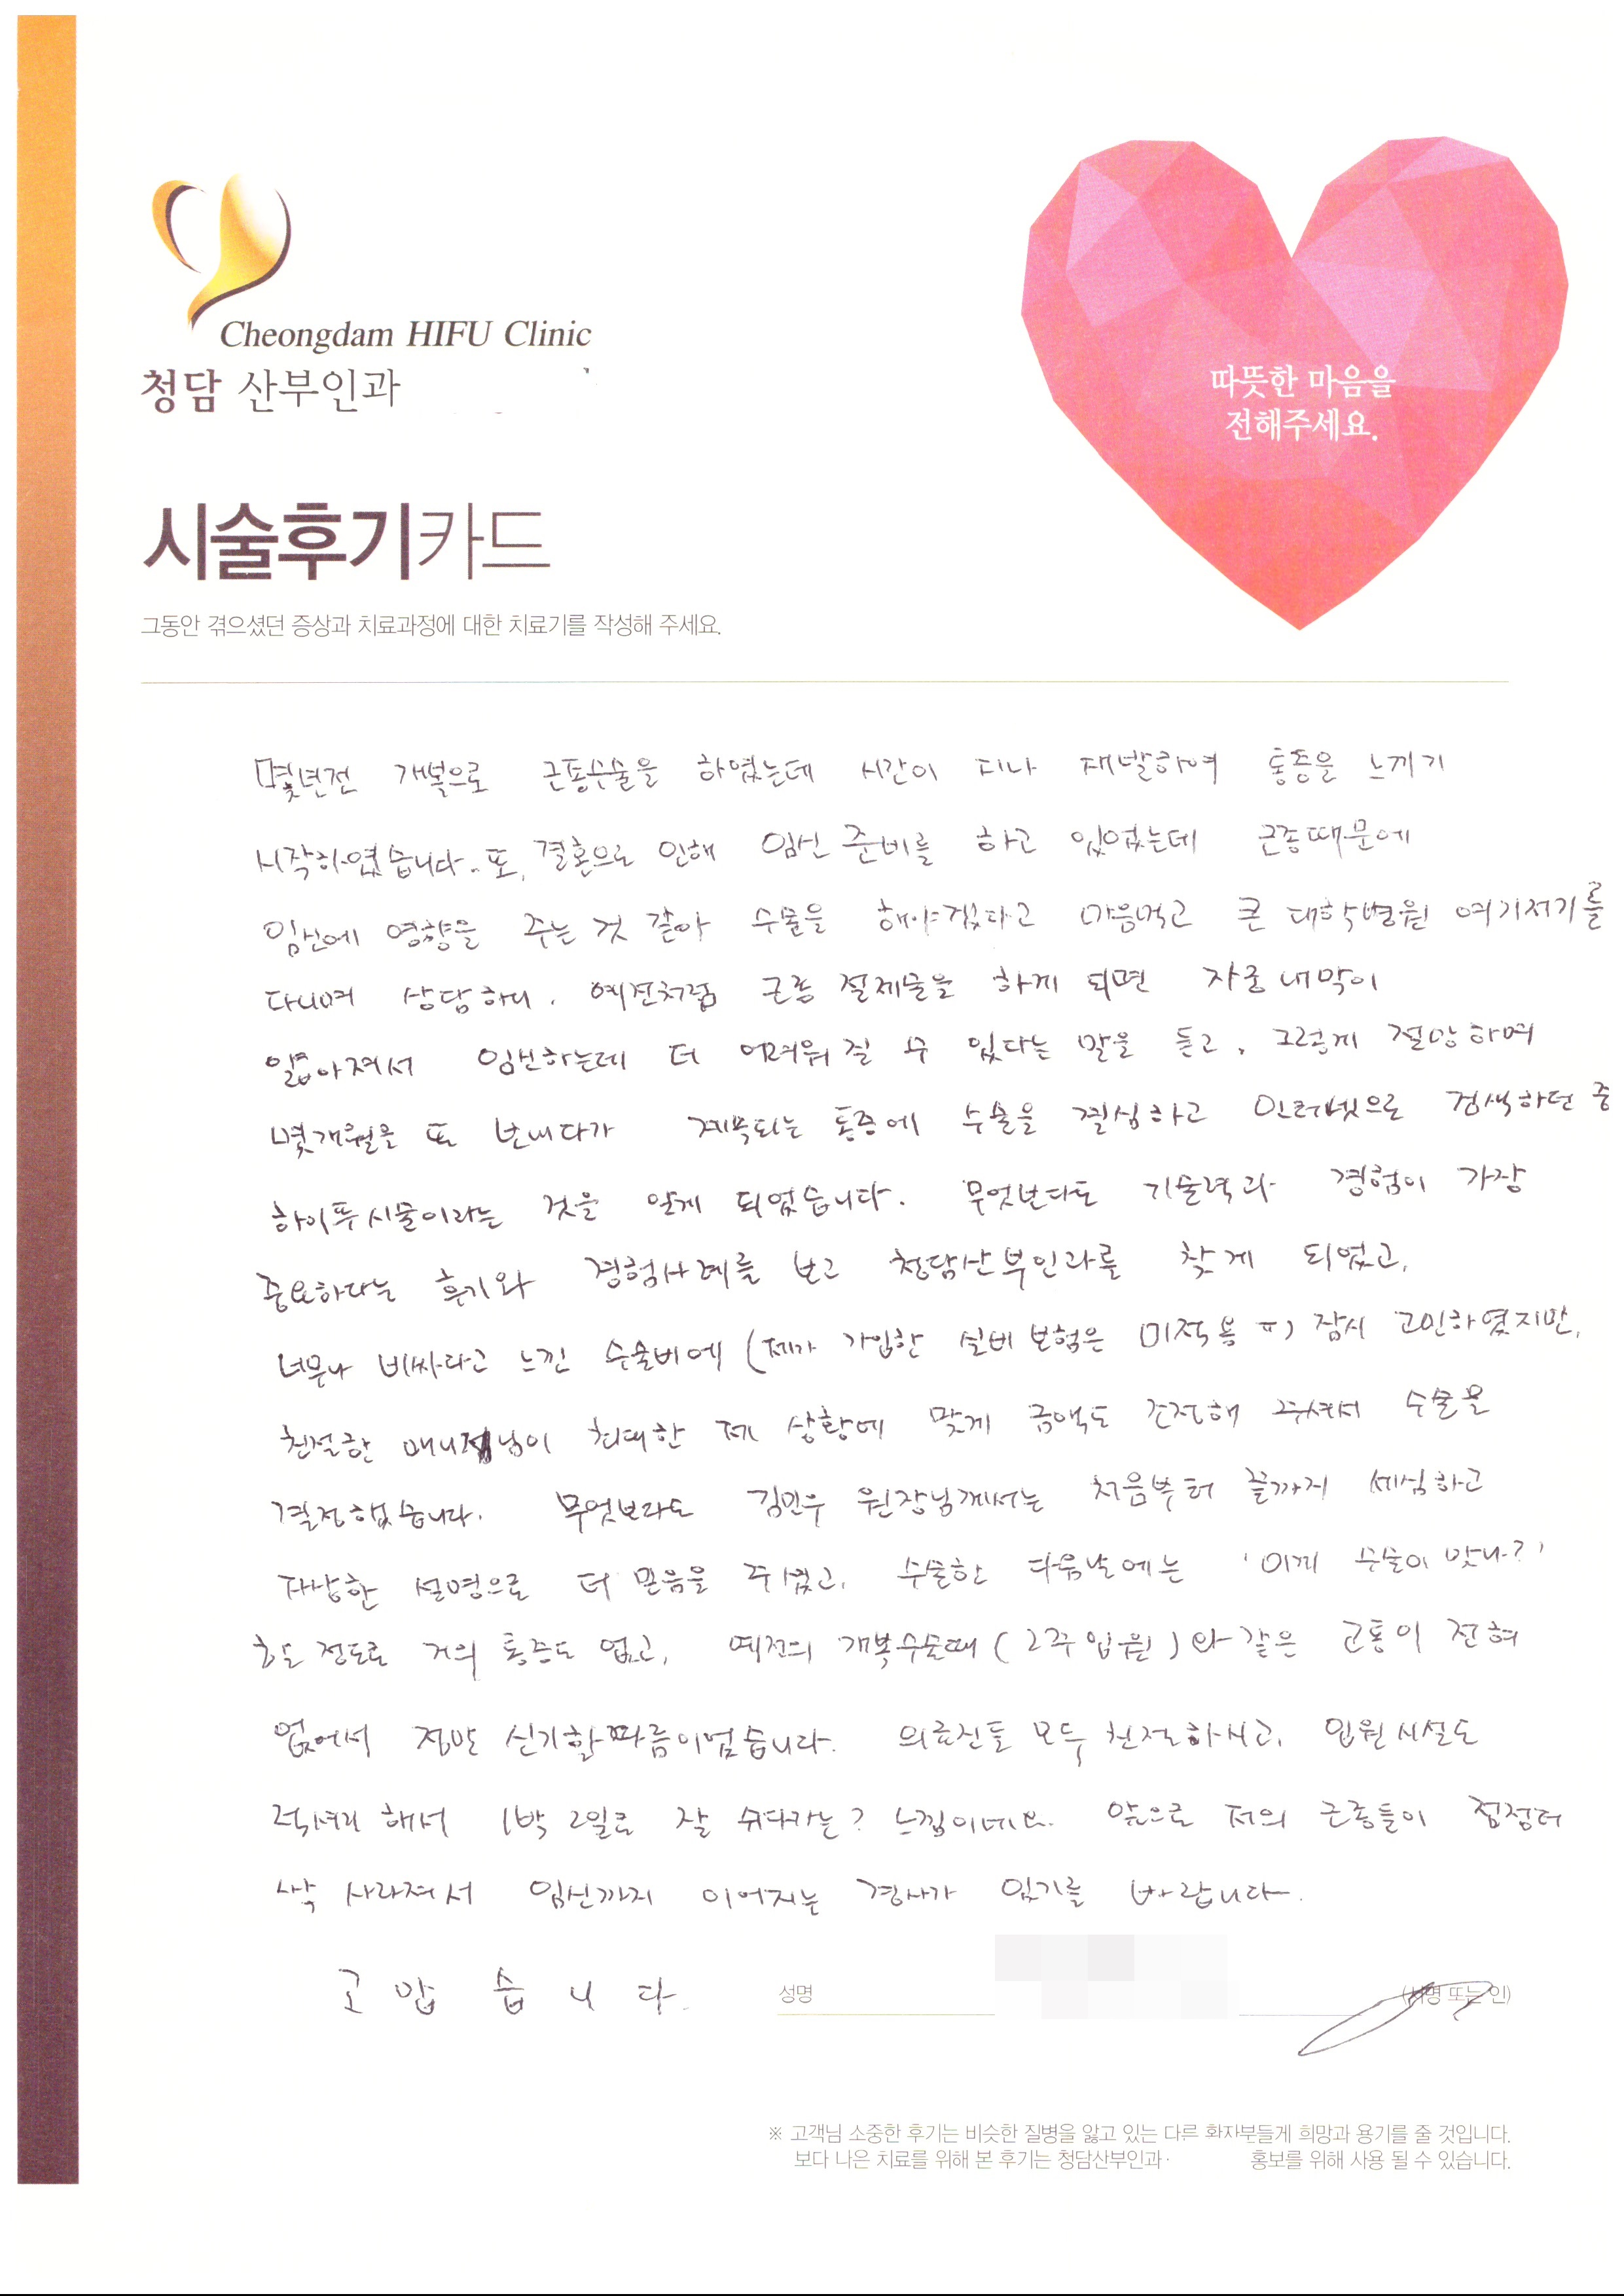 Cheongdam HIFU Clinic
청담 산부인과
따뜻한 마음을
전해주세요.
시술후기카드
그동안 겪으셨던 증상과 치료과정에 대한 치료기를 작성해 주세요.
몇년전 개복으로 근종수술을 하였는데 시간이 지나 재발하여 통증을 느끼기
시작하였습니다. 또, 결혼으로 인해 임신 준비를 하고 있었는데 근종때문에
임신에 영향을 주는 것 같아 수술을 해야겠다고 마음먹고 큰 대학병원 여기저기를
다니며 상담하니, 예전처럼 근종 절제술을 하게 되면 자궁내막이
얇아져서 임신하는데 더 어려워 질 수 있다는 말을 듣고, 그렇게 절망하며
몇개월을 또 보내다가 계속되는 통증에 수술을 결심하고 인터넷으로 검색하던 중
하이푸시술이라는 것을 알게 되었습니다. 무엇보다도 기술력과 경험이 가장
중요하다는 후기와 경험사례를 보고 청담산부인과를 찾게 되었고,
너무나 비싸다고 느낀 수술비에 (제가 가입한 실비보험은 미적용 ㅠ) 잠시 고민하였지만,
친절한 매니저님이 최대한 제 상황에 맞게 금액도 조정해 주셔서 수술을
결정했습니다. 무엇보다도 김민우 원장님께서는 처음부터 끝까지 세심하고
자상한 설명으로 더 믿음을 주셨고, 수술한 다음날에는 '이게 수술이 맞나?'
할 정도로 거의 통증도 없고, 예전의 개복수술때 (2주 입원) 와 같은 고통이 전혀
없어서 정말 신기할따름이었습니다. 의료진들 모두 친절하시고, 입원시설도
럭셔리 해서 1박 2일로 잘 쉬다가는? 느낌이네요. 앞으로 저의 근종들이 점점더
싹 사라져서 임신까지 이어지는 경사가 있기를 바랍니다.
고 맙 습 니 다.
성명 (서명 또는 인)
※ 고객님 소중한 후기는 비슷한 질병을 앓고 있는 다른 환자분들게 희망과 용기를 줄 것입니다.
보다 나은 치료를 위해 본 후기는 청담산부인과· 홍보를 위해 사용 될 수 있습니다.